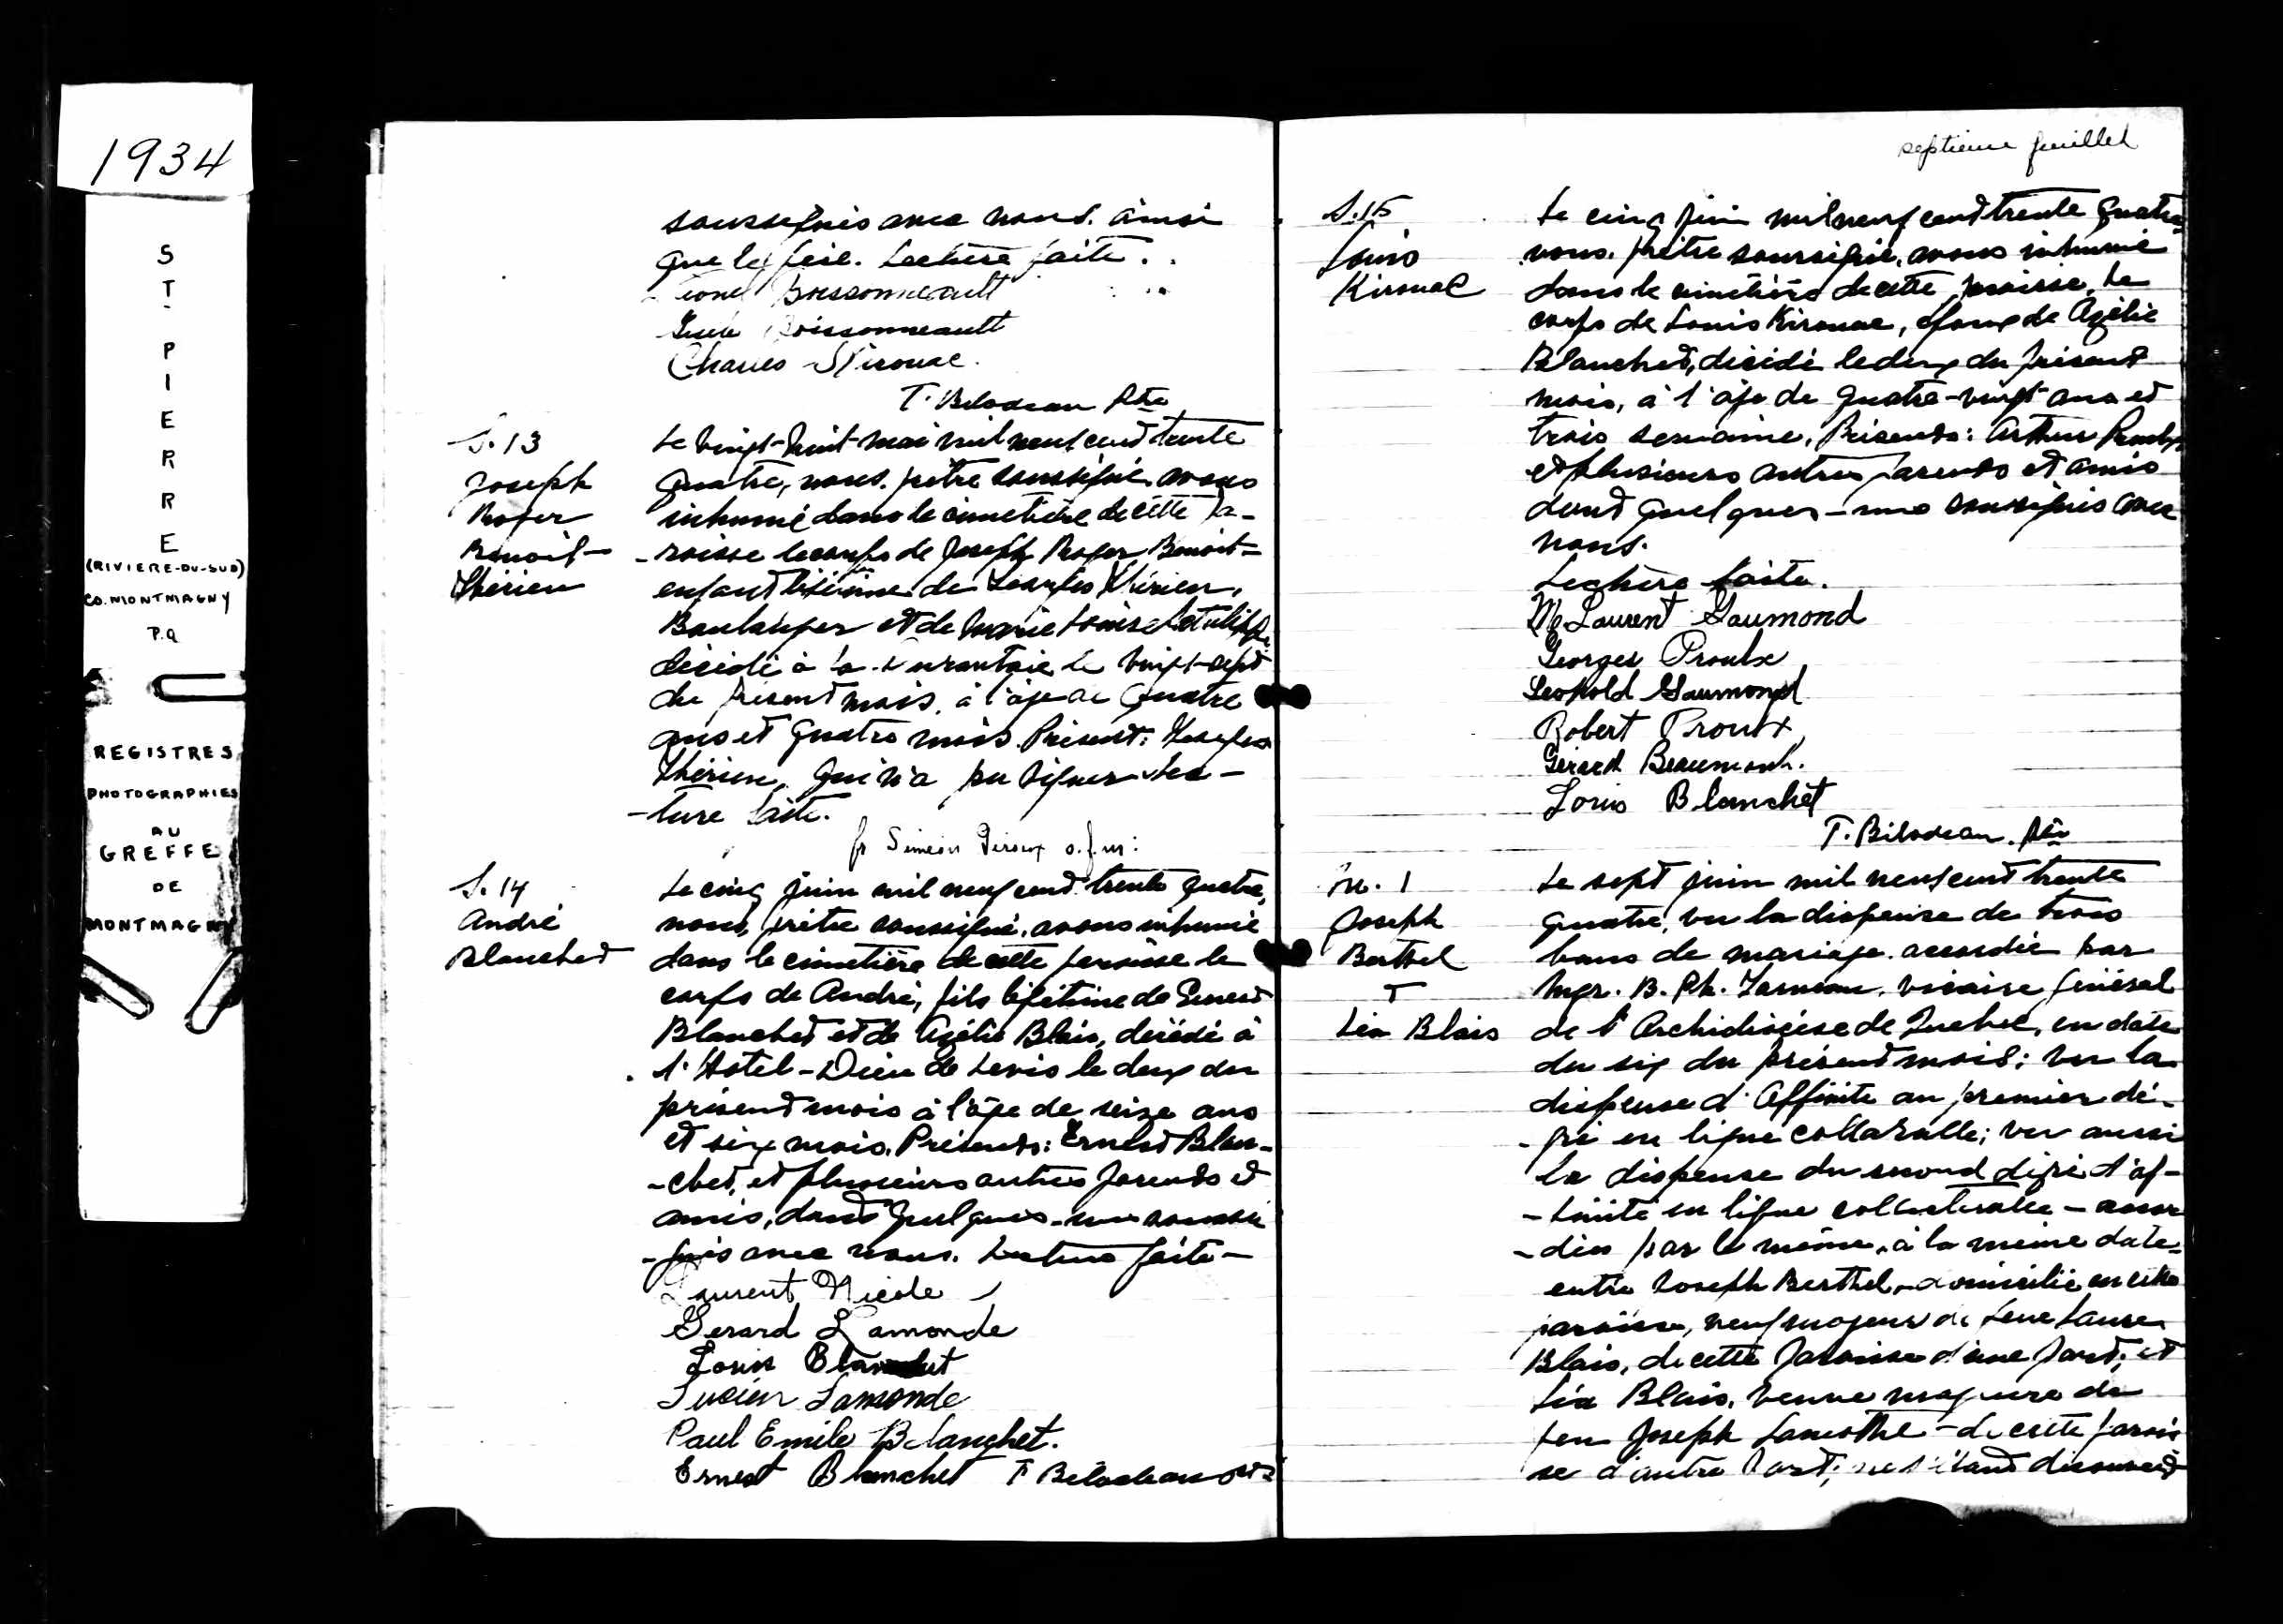 1934
ST-PIERRE
(RIVIERE-DU-SUD)
CO. MONTMAGNY
P.Q
REGISTRES
PHOTOGRAPHIES
AU
GREFFE
DE
MONTMAGNY
soussignés avec nous. ainsi
que le père. Lecture faite.
Boissonneault
Boissonneault
Charles Kirouac.
T. Bilodeau Ptre
S. 13
Joseph
Roger
Benoit
Thérien
Le vingt-huit mai mil neuf cent trente
quatre, nous, prêtre soussigné avons
inhumé dans le cimetière de cette pa-
-roisse le corps de Joseph Roger Benoit-
enfant légitime de Thérien,
Boulanger et de Marie Louise
décédé à la Durantaye le vingt-sept
du présent mois, à l'âge de quatre
ans et quatre mois. Présent:
Thérien, qui n'a pu signer. Lec-
-ture faite.
fr Siméon o.f.m:
S. 14
André
Blanchet
Le cinq juin mil neuf cent trente quatre,
nous, prêtre soussigné, avons inhumé
dans le cimetière de cette paroisse le
corps de André, fils légitime de Ernest
Blanchet et de Azélie Blais, décédé à
l'Hotel-Dieu de Levis le deux du
présent mois à l'âge de seize ans
et six mois. Présents: Ernest Blan-
-chet, et plusieurs autres parents et
amis, dont quelques-uns soussi
-gnés avec nous. Lecture faite-
Laurent Nicole
Gerard Lamonde
Louis Blanchet
Lucien Lamonde
Paul Emile Blanchet.
Ernest Blanchet T Bilodeau ptre
septième feuillet
S. 15
Louis
Kirouac
Le cinq juin mil neuf cent trente quatre
nous, prêtre soussigné, avons inhumé
dans le cimetière de cette paroisse, le
corps de Louis Kirouac, époux de Azélie
Blanchet, décédé le deux du présent
mois, à l'âge de quatre-vingt ans et
trois semaine, Présents: Arthur Proulx
et plusieurs autres parents et amis
dont quelques-uns soussignés avec
nous.
Lecture faite.
M Laurent Gaumond
Georges Proulx
Leopold Gaumond
Robert Proulx
Gérard Beaumont.
Louis Blanchet
T. Bilodeau. ptre
M. 1
Joseph
Berthel
T
Léa Blais
Le sept juin mil neuf cent trente
quatre, vu la dispense de trois
bans de mariage accordée par
Mgr. B. Ph. Garneau. vicaire général
de l'Archidiocèse de Quebec, en date
du six du présent mois; vu la
dispense d'Affinité au premier dé-
-gré en ligne collaralle; vu aussi
la dispense du second dégré d'af-
-finité en ligne collatérale - accor
-dées par le même, à la même date-
entre Joseph Berthel, domicilié en cette
paroisse, veuf majeur de feue Laura
Blais, de cette paroisse d'une part; et
Léa Blais, veuve majeure de
feu Joseph Lamothe - de cette parois
se d'autre part; ne s'étant découvert